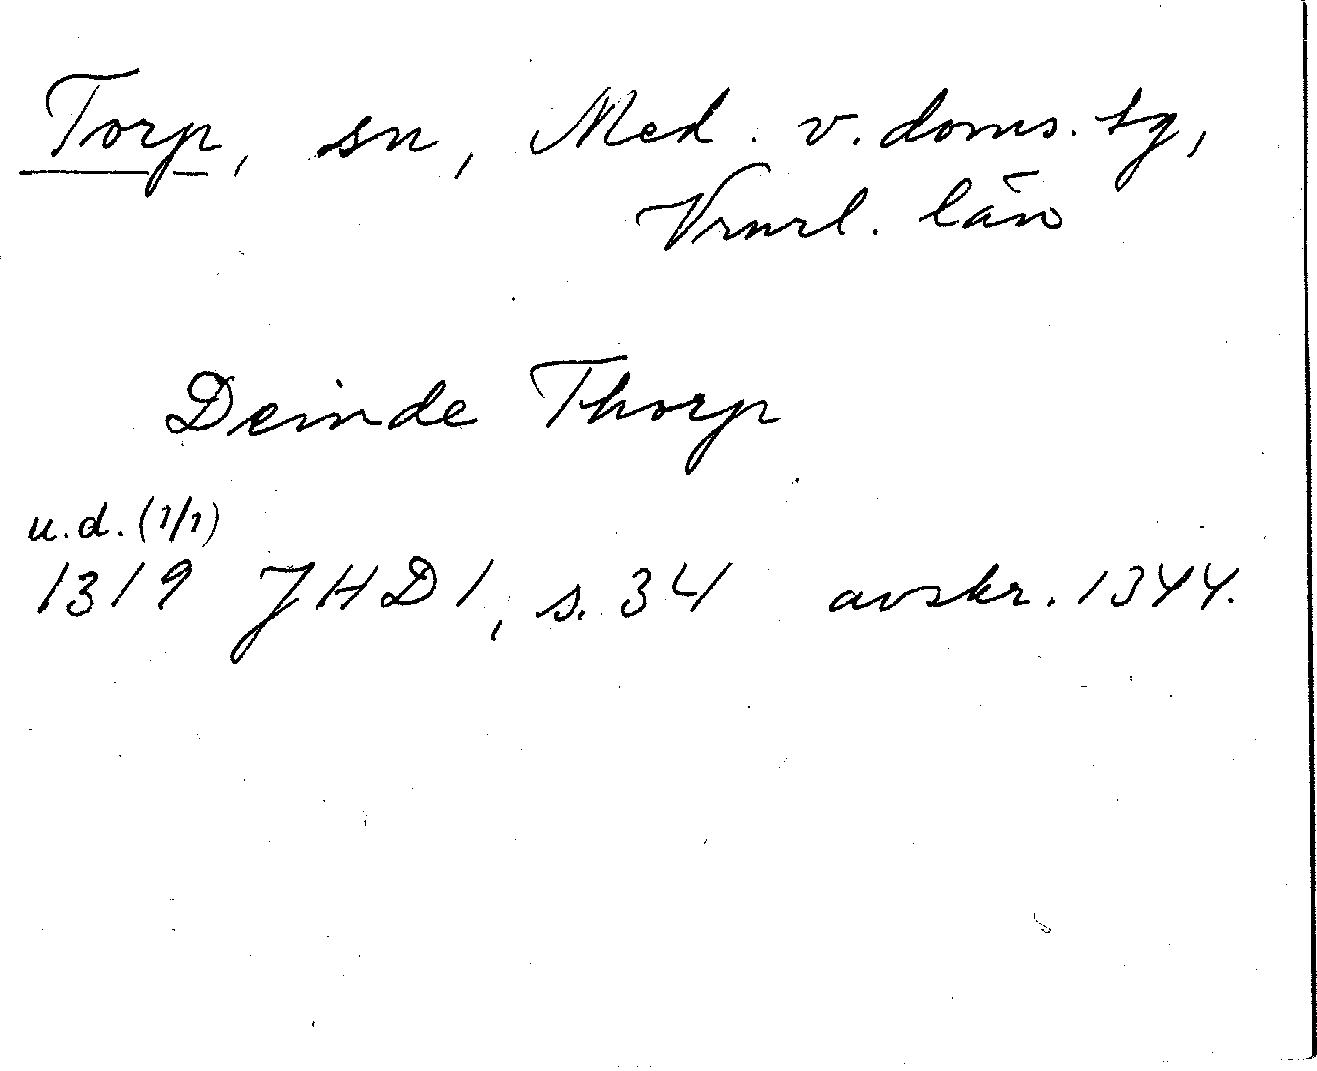 Torp, sn, Med. v. doms. tg,
Vrnrl. län
Deinde Thorp
u.d. (1/1)
1319 JHD 1, s. 34 avskr. 1344.